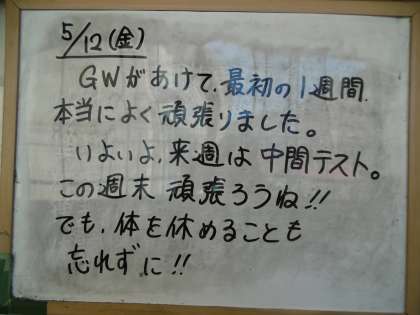 5/12(金)
GWがあけて、最初の1週間、
本当によく頑張りました。
いよいよ、来週は中間テスト。
この週末 頑張ろうね!!
でも、体を休めることも
忘れずに!!